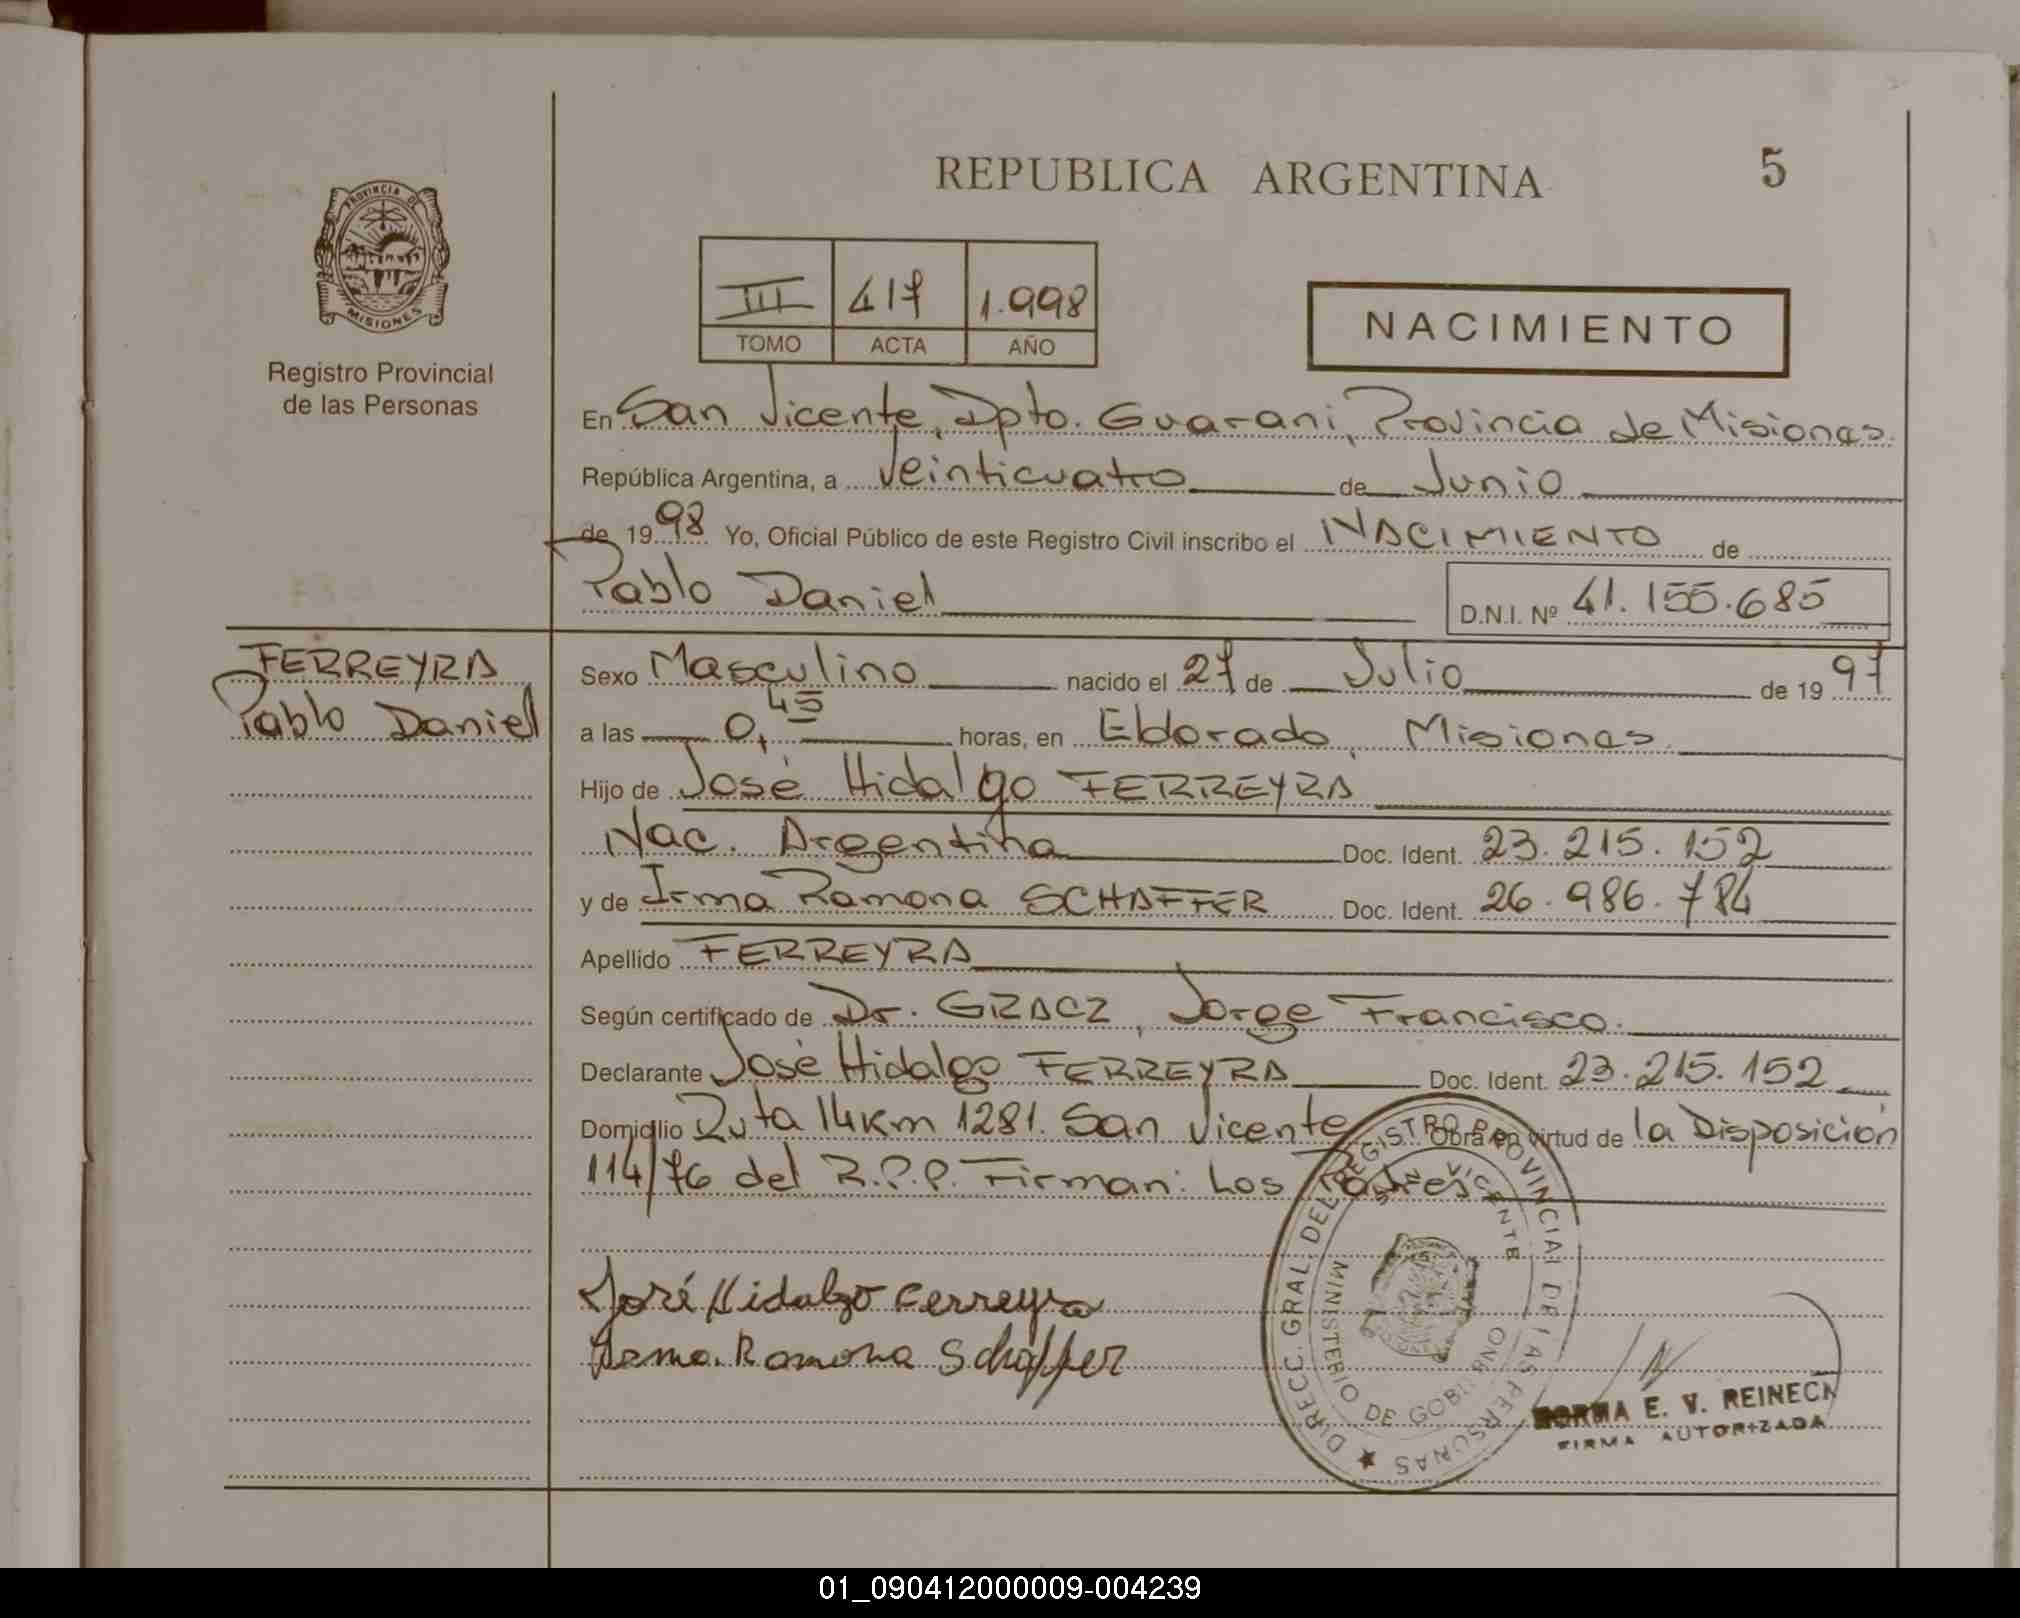 REPUBLICA ARGENTINA
5
PROVINCIA DE
MISIONES
Registro Provincial
de las Personas
III 417 1.998
TOMO ACTA AÑO
NACIMIENTO
En San Vicente, Dpto. Guarani, Provincia de Misiones.
República Argentina, a Veinticuatro de Junio
de 1998 Yo, Oficial Público de este Registro Civil inscribo el NACIMIENTO de
Pablo Daniel
D.N.I. Nº 41.155.685
FERREYRA
Pablo Daniel
Sexo Masculino nacido el 27 de Julio de 1997
a las 0,45 horas, en Eldorado, Misiones.
Hijo de José Hidalgo FERREYRA
Nac. Argentina Doc. Ident. 23.215.152
y de Irma Ramona SCHAFFER Doc. Ident. 26.986.784
Apellido FERREYRA
Según certificado de Dr. GRACZ, Jorge Francisco.
Declarante José Hidalgo FERREYRA Doc. Ident. 23.215.152
Domicilio Ruta 14 Km 1281. San Vicente Obra en virtud de la Disposición
114/76 del R.P.P. Firman: Los Padres
José Hidalgo Ferreyra
Irma Ramona Schaffer
DIRECC. GRAL. DEL REGISTRO PROVINCIAL DE LAS PERSONAS
SAN VICENTE
MINISTERIO DE GOBIERNO
NORMA E. V. REINECK
FIRMA AUTORIZADA
01_090412000009-004239